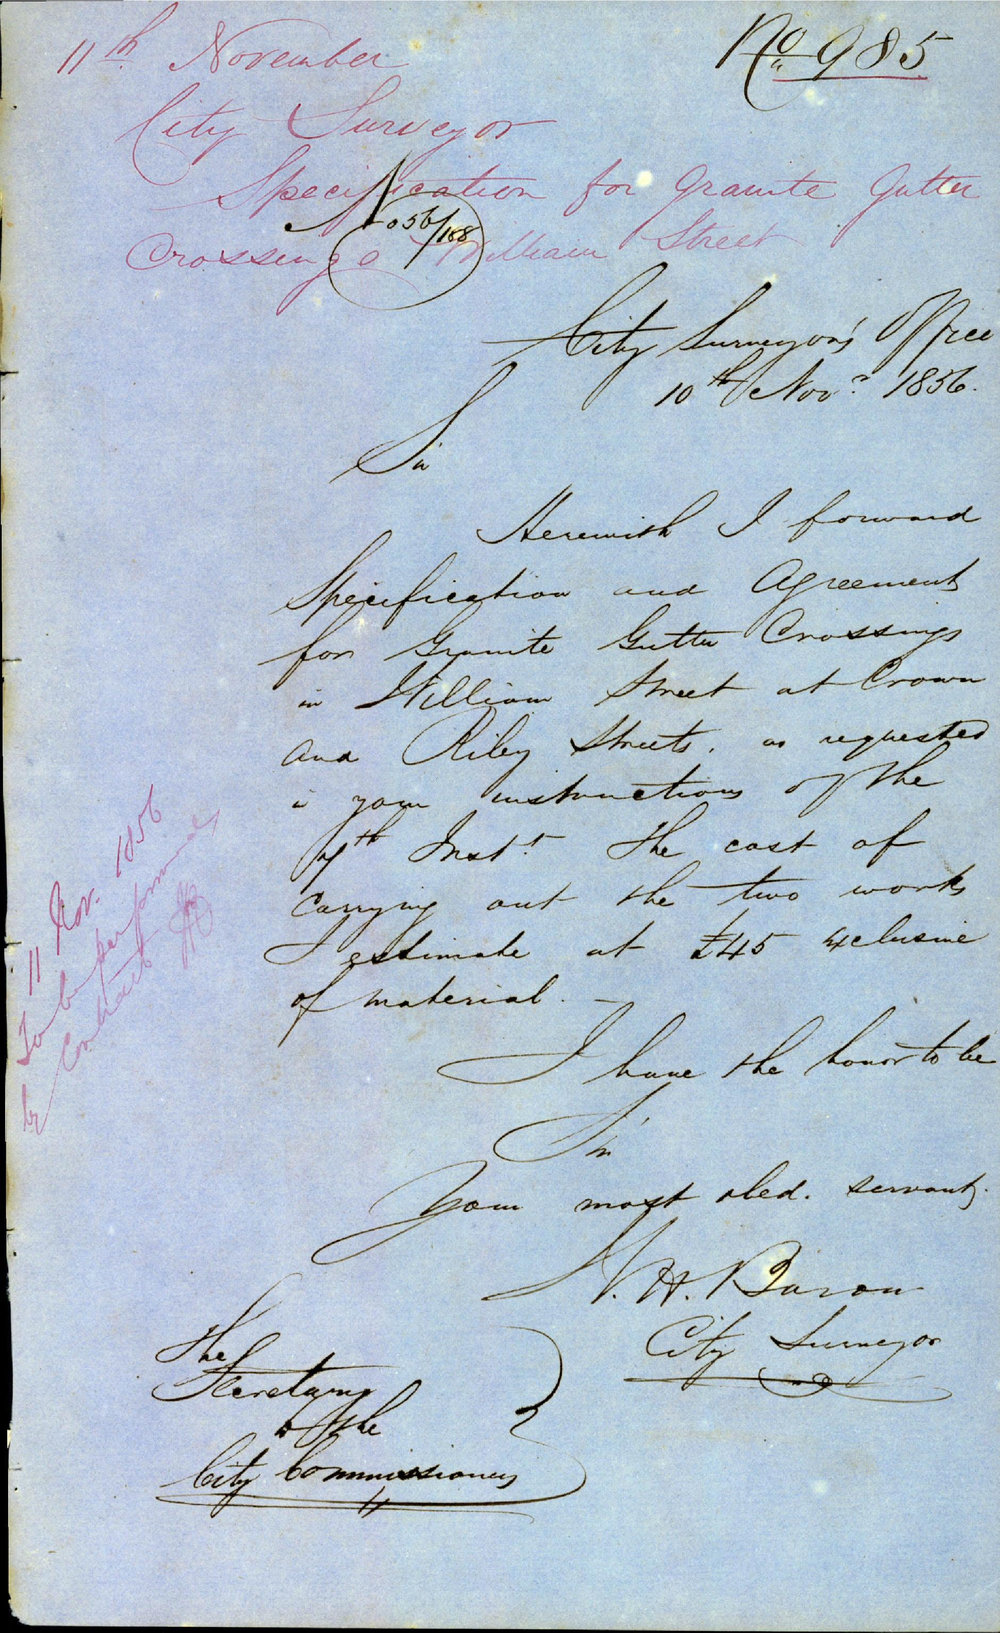 No 985
11th November
City Surveyor
Specification for Granite Gutter
Crossings William Street
No 56/188
City Surveyor's Office
10th Nov.r 1856.
Sir
Herewith I forward
Specification and Agreement
for Granite Gutter Crossings
in William Street at Crown
and Riley Streets. as requested
in your instructions of the
7th Inst.t The cost of
carrying out the two works
I estimate at £45 exclusive
of material. —
I have the honor to be
Sir
Your most obed. servant.
W. H. Baron
City Surveyor
The
Secretary
to the
City Commissioners
11 Nov. 1856
To be performed
by Contract